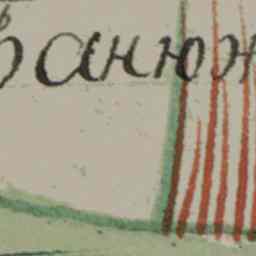 ванюж